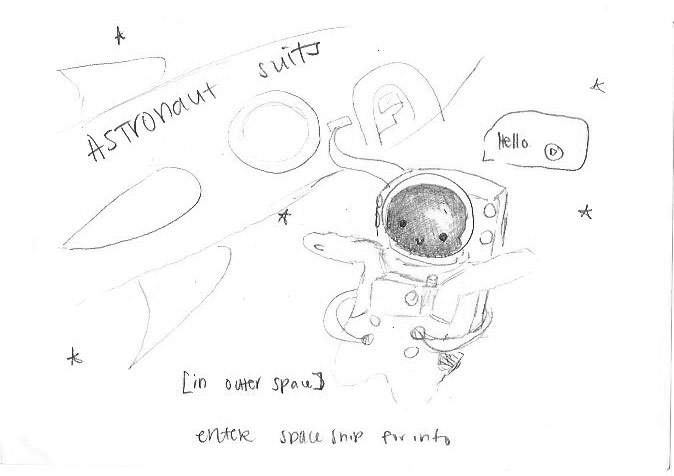 ASTRONAUT suits
Hello
[in outer space]
enter space ship for info